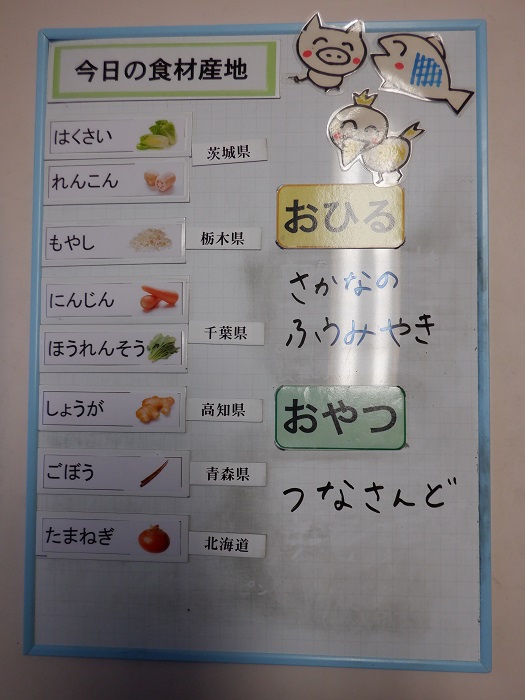 今日の食材産地
はくさい
茨城県
れんこん
もやし
栃木県
にんじん
千葉県
ほうれんそう
しょうが
高知県
ごぼう
青森県
たまねぎ
北海道
おひる
さかなの
ふうみやき
おやつ
つなさんど